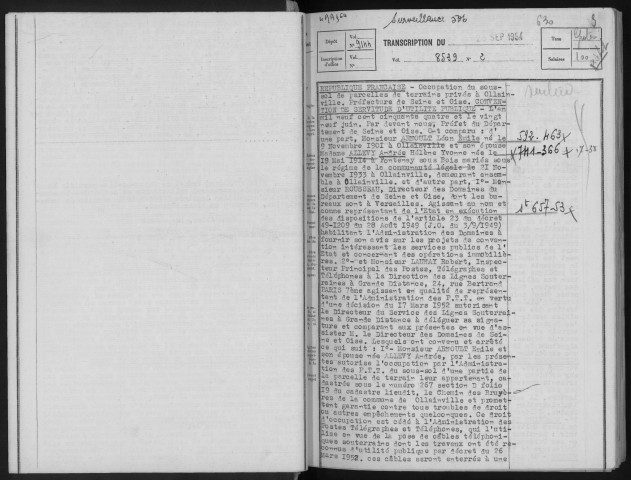 Surveillance 596
Dépôt
Vol.
N° 9144
Inscription d'office
Vol.
N°
TRANSCRIPTION DU
SEP 1954
Vol. 8529 N° 2
630
3
Taxe
Salaires
RÉPUBLIQUE FRANCAISE - Occupation du sous-
sol de parcelles de terrains privés à Ollain-
ville. Préfecture de Seine et Oise. CONVEN-
TION DE SERVITUDE D'UTILITE PUBLIQUE - L'an
mil neuf cent cinquante quatre et le vingt
neuf juin. Par devant nous, Préfet du Dépar-
tement de Seine et Oise. Ont comparu : d'
une part, Monsieur ARNOULT Léon Emile né le
9 Novembre 1901 à Ollainville et son épouse
Madame ALLEVY Andrée Hélène Yvonne née le
19 Mai 1914 à Fontenay sous Bois mariés sous
le régime de la communauté légale le 21 No-
vembre 1933 à Ollainville, demeurant ensem-
ble à Ollainville, et d'autre part, 1°- Mon-
sieur ROUSSEAU, Directeur des Domaines du
Département de Seine et Oise, dont les bu-
reaux sont à Versailles. Agissant au nom et
comme représentant de l'Etat en exécution
des dispositions de l'article 23 du décret
49-1209 du 28 Août 1949 (J.O. du 3/9/1949)
habilitent l'Administration des Domaines à
fournir son avis sur les projets de conven-
tion intéressant les services publics de l'
Etat et concernant des opérations immobiliè-
res. 2°- et Monsieur LAUNAY Robert, Inspec-
teur Principal des Postes, Télégraphes et
Téléphones à la Direction des Lignes Souter-
raines à Grande Distance, 24, rue Bertrand
PARIS 7ème agissant en qualité de représen-
tant de l'Administration des P.T.T. en vertu
d'une décision du 17 Mars 1952 autorisant
le Directeur du Service des Lignes Souterrai-
nes à Grande Distance à déléguer sa signa-
ture et comparant aux présentes en vue d'as-
sister M. le Directeur des Domaines de Sei-
ne et Oise. Lesquels ont convenu et arrêté
ce qui suit : 1°- Monsieur ARNOULT Emile et
son épouse née ALLEVY Andrée, par les présen-
tes autorise l'occupation par l'Administra-
tion des P.T.T. du sous-sol d'une partie de
la parcelle de terrain leur appartenant, ca-
dastrée sous le numéro 267 section D folio
19 du cadastre lieudit, le Chemin des Bruyè-
res de la commune de Ollainville et promet-
tent garantie contre tous troubles de droit
ou autres empêchements quelconques. Ce droit
d'occupation est cédé à l'Administration des
Postes Télégraphes et Téléphones, qui l'uti-
lise en vue de la pose de câbles téléphoni-
ques souterrains dont les travaux ont été re-
connus d'utilité publique par décret du 26
Mars 1952. ces câbles seront enterrés à une
592-463
741-366
1° 657-53